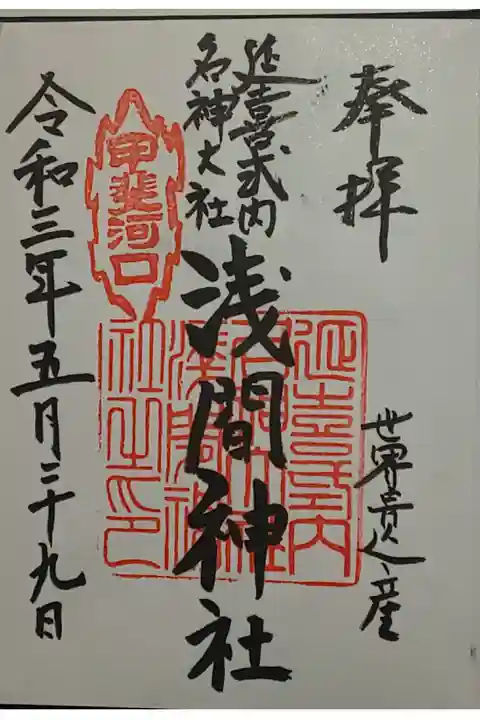 奉拝
世界遺産
延喜式内
名神大社
浅間神社
甲斐河口
延喜式内
浅間神
社之印
令和三年五月二十九日